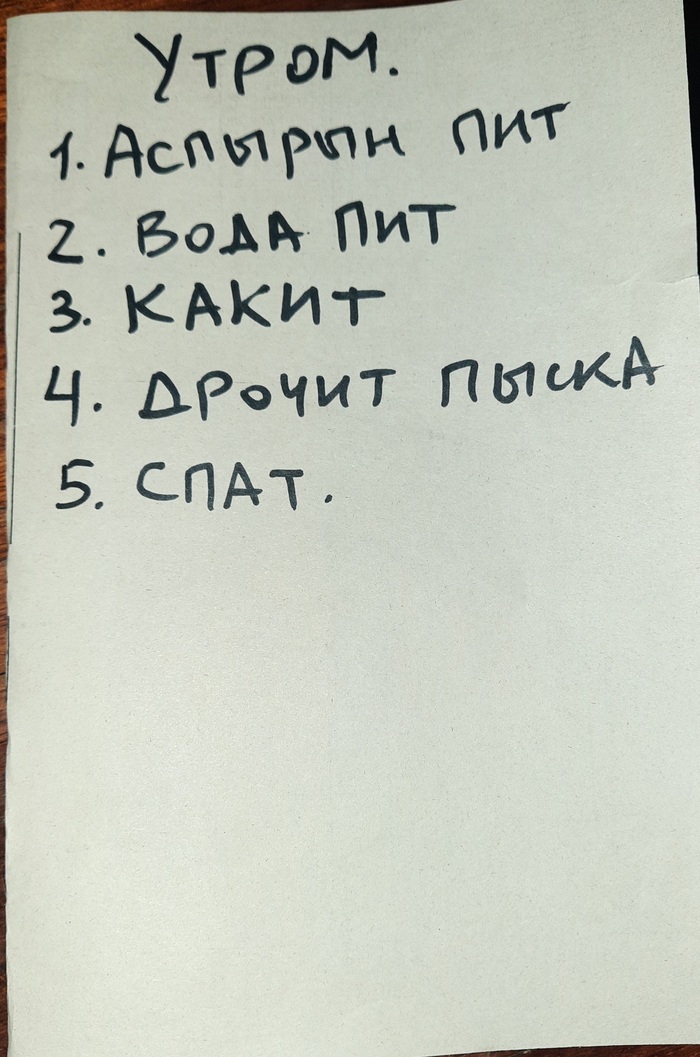 Утром.
1. Аспырын пит
2. Вода пит
3. Какит
4. Дрочит пыска
5. Спат.